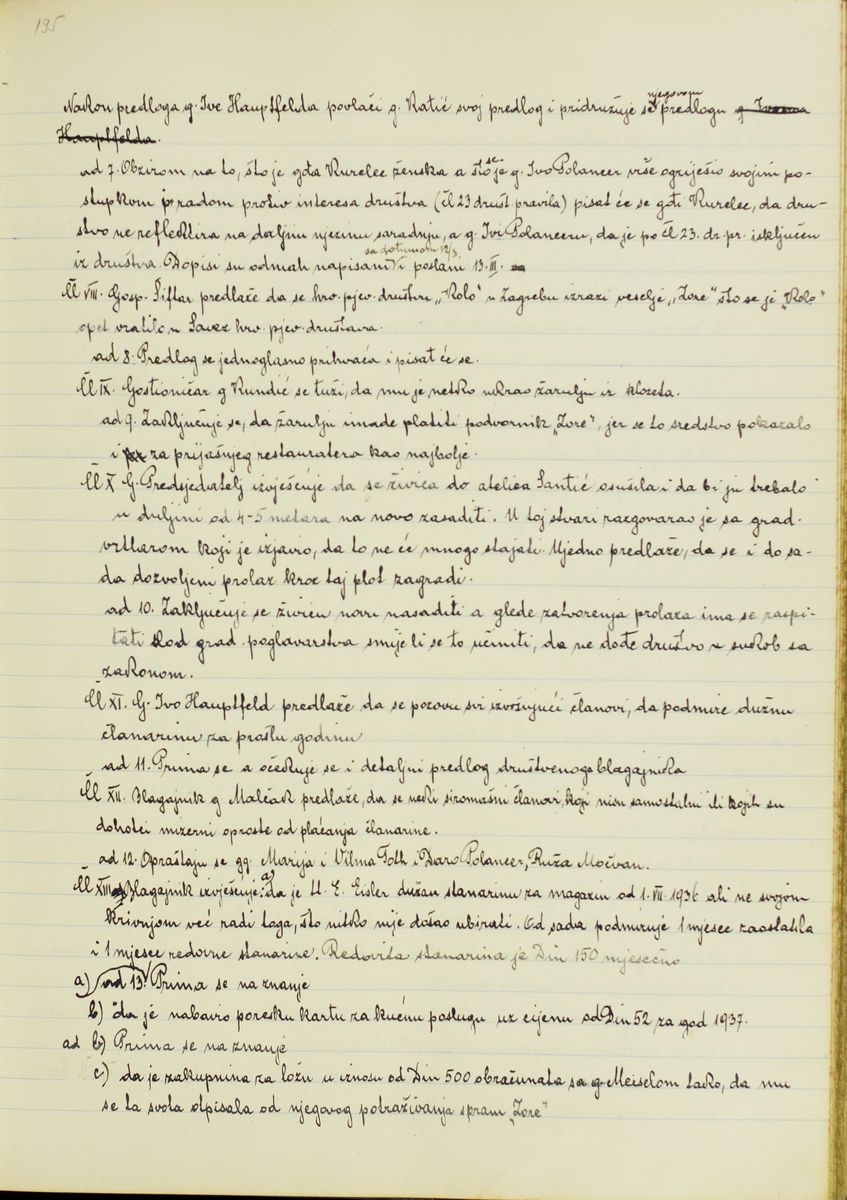 195
Nakon predloga g. Ive Hauptfelda povlači g. Katić svoj predlog i pridružuje se njegovom predlogu g. Ivana
Hauptfelda.
ad 7. Obzirom na to, što je gđa Kurelec ženska a što se je g. Ivo Polancer više ogriješio svojim po-
stupkom i radom protiv interesa društva (čl 23 društ pravila) pisat će se gđi Kurelec, da dru-
štvo ne reflektira na daljnu njezinu saradnju, a g. Ivi Polanceru, da je po čl 23. dr. pr. isključen
iz društva. Dopisi su odmah napisani sa datumom 12/3. i poslani 13. III.
Čl VIII. Gosp. Šiftar predlaže da se hrv. pjev. društvu „Kolo" u Zagrebu izrazi veselje „Zore" što se je „Kolo"
opet vratilo u Savez hrv. pjev. društava.
ad 8. Predlog se jednoglasno prihvaća i pisat će se.
Čl IX. Gostioničar g Kundić se tuži, da mu je netko ukrao žarulju iz klozeta.
ad 9. Zaključuje se, da žarulju imade platiti podvornik „Zore", jer se to sredstvo pokazalo
i za prijašnjeg restauratera kao najbolje.
Čl X G. Predsjedatelj izvješćuje da se živica do ateliea Šantić osušila i da bi ju trebalo
u duljini od 4-5 metara na novo zasaditi. U toj stvari razgovarao je sa grad.
vrtlarom koji je izjavio, da to ne će mnogo stajati. Ujedno predlaže, da se i do sa-
da dozvoljeni prolaz kroz taj plot zagradi.
ad 10. Zaključuje se živicu novu nasaditi a glede zatvorenja prolaza ima se raspi-
tati kod grad. poglavarstva smije li se to učiniti, da ne dođe društvo u sukob sa
zakonom.
Čl XI. G. Ivo Hauptfeld predlaže da se pozovu svi izvršujući članovi, da podmire dužnu
članarinu za prošlu godinu
ad 11. Prima se a očekuje se i detaljni predlog društvenoga blagajnika
Čl XII. Blagajnik g Malčak predlaže, da se neki siromašni članovi, koji nisu samostalni ili kojih su
dohotci mizerni oproste od plaćanja članarine.
ad 12. Opraštaju se gg. Marija i Vilma Toth i Daro Polancer, Ruža Močvan.
Čl XIII Blagajnik izvješćuje: a) da je H. E. Eisler dužan stanarinu za magazin od 1. VII. 1936 ali ne svojom
krivnjom već radi toga, što nitko nije došao ubirati. Od sada podmiruje 1 mjesec zaostatka
i 1 mjesec redovne stanarine. Redovita stanarina je Din 150 mjesečno
a) ad 13. Prima se na znanje
b) da je nabavio poresku kartu za kućnu poslugu uz cijenu od Din 52 za god 1937.
ad b) Prima se na znanje
c) da je zakupnina za ložu u iznosu od Din 500 obračunata sa g. Meiselom tako, da mu
se ta svota otpisala od njegovog potraživanja spram „Zore"